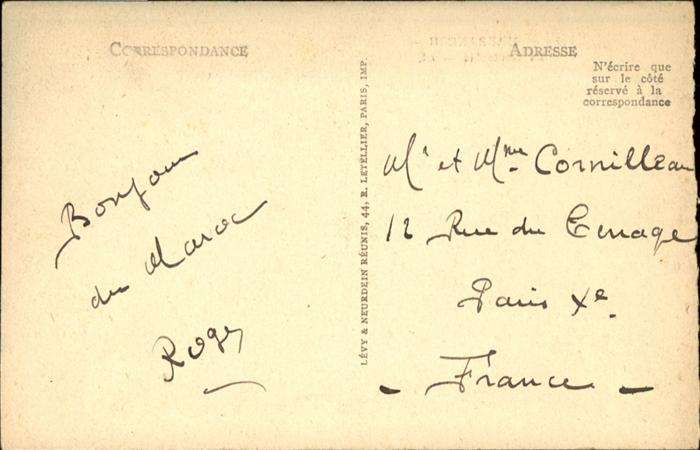 CORRESPONDANCE
ADRESSE
N'écrire que
sur le côté
réservé à la
correspondance
LÉVY & NEURDEIN RÉUNIS, 44, R. LETELLIER, PARIS, IMP.
Bonjour
du Maroc
Roger
Mr et Mme Cornilleau
12 Rue du
Paris Xe
- France -